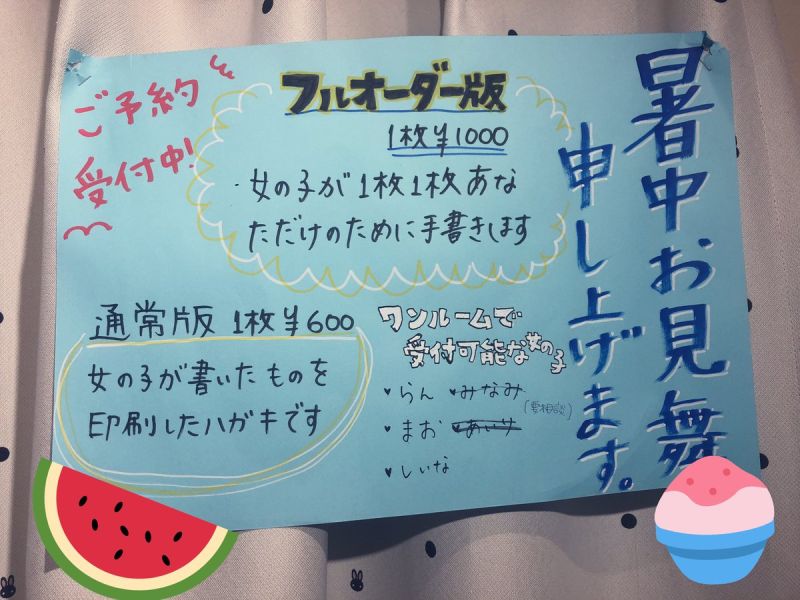 暑中お見舞
申し上げます。
ご予約
受付中!
フルオーダー版
1枚¥1000
・女の子が1枚1枚あな
ただけのために手書きします
通常版 1枚¥600
女の子が書いたものを
印刷したハガキです
ワンルームで
受付可能な女の子
♥らん ♥みなみ
(要相談)
♥まお
♥しいな